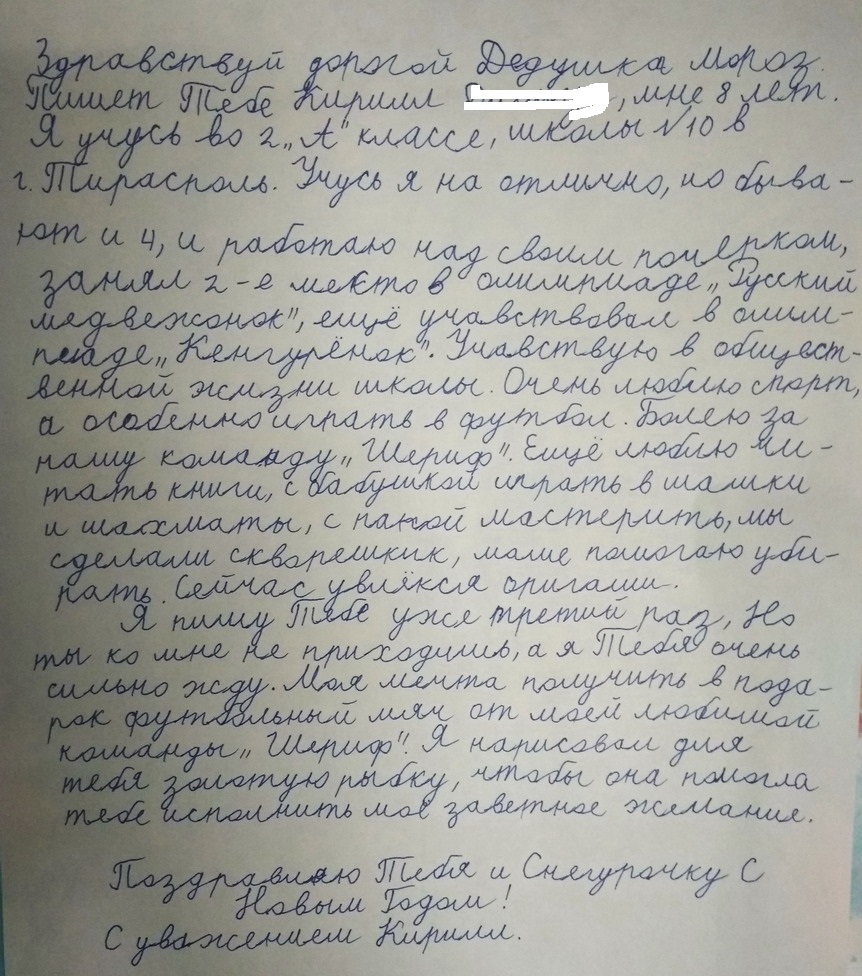 Здравствуй дорогой Дедушка Мороз.
Пишет Тебе Кирилл , мне 8 лет.
Я учусь во 2 „А" классе, школы №10 в
г. Тирасполь. Учусь я на отлично, но быва-
ют и 4, и работаю над своим почерком,
занял 2-е место в олимпиаде „Русский
медвежонок", ещё учавствовал в олим-
пиаде „Кенгурёнок". Учавствую в общест-
венной жизни школы. Очень люблю спорт,
а особенно играть в футбол. Болею за
нашу команду „Шериф". Ещё люблю чи-
тать книги, с бабушкой играть в шашки
и шахматы, с папой мастерить, мы
сделали скворешник, маме помогаю уби-
рать. Сейчас увлёкся оригами.
Я пишу Тебе уже третий раз, Но
ты ко мне не приходишь, а я Тебя очень
сильно жду. Моя мечта получить в пода-
рок футбольный мяч от моей любимой
команды „Шериф". Я нарисовал для
тебя золотую рыбку, чтобы она помогла
тебе исполнить моё заветное желание.
Поздравляю Тебя и Снегурочку С
Новым Годом!
С уважением Кирилл.